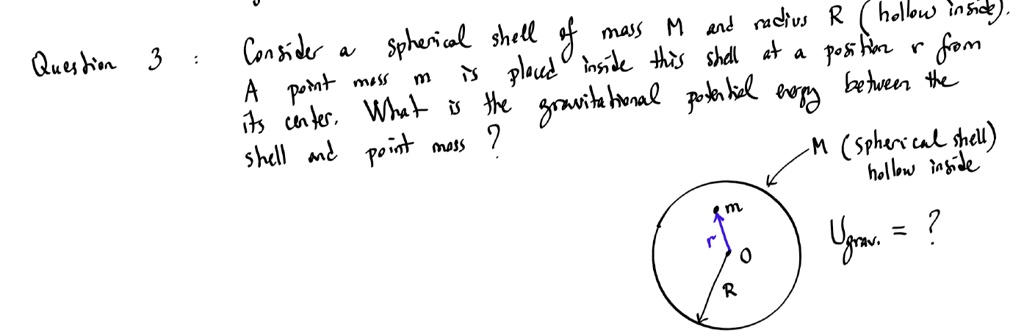 Question 3 : Consider a spherical shell of mass M and radius R (hollow inside).
A point mass m is placed inside this shell at a position r from
its center. What is the gravitational potential energy between the
shell and point mass ?
M (spherical shell)
hollow inside
m
r
O
R
Ugrav. = ?